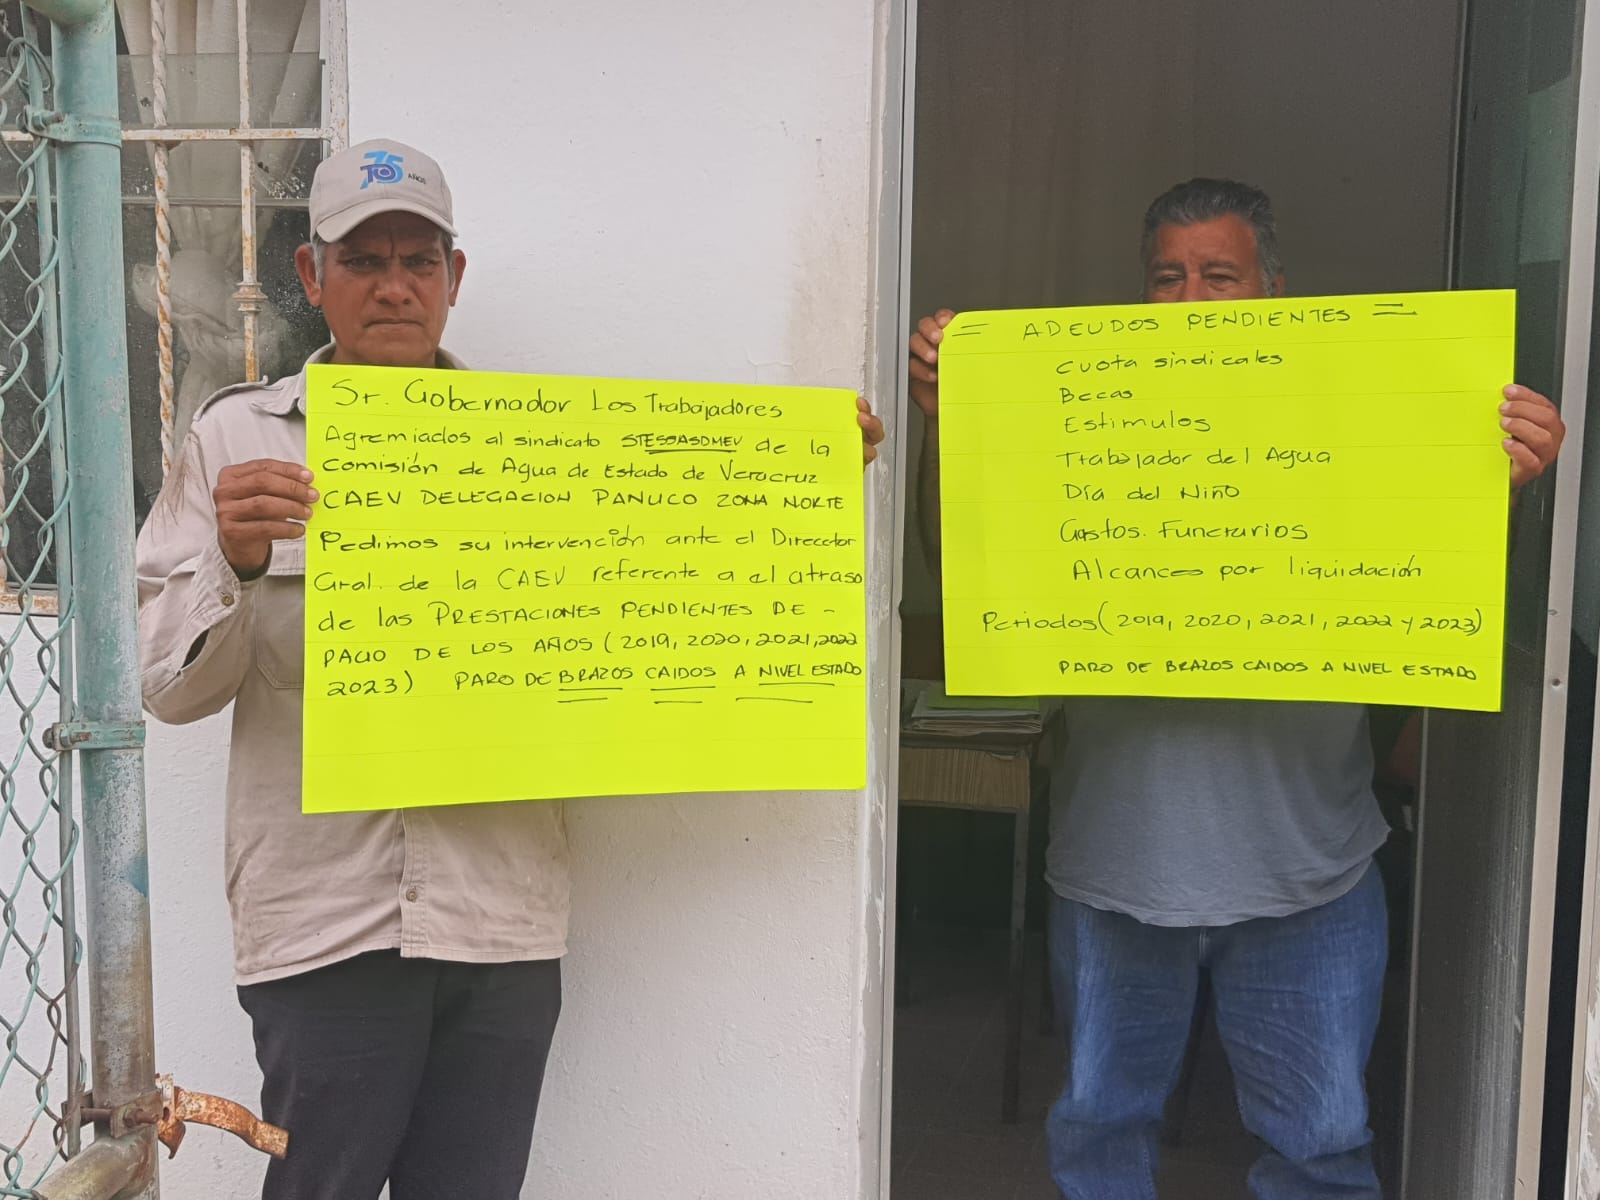 75
TO
AÑOS
Sr. Gobernador Los Trabajadores
Agremiados al sindicato STESOASDMEV de la
Comisión de Agua de Estado de Veracruz
CAEV DELEGACION PANUCO ZONA NORTE
Pedimos su intervención ante el Direcctor
Gral. de la CAEV referente a el atraso
de las PRESTACIONES PENDIENTES DE -
PAGO DE LOS AÑOS (2019, 2020, 2021, 2022
2023) PARO DE BRAZOS CAIDOS A NIVEL ESTADO
= ADEUDOS PENDIENTES =
cuota sindicales
Becas
Estimulos
Trabajador del Agua
Día del Niño
Gastos. Funerarios
Alcances por liquidación
Periodos (2019, 2020, 2021, 2022 y 2023)
PARO DE BRAZOS CAIDOS A NIVEL ESTADO